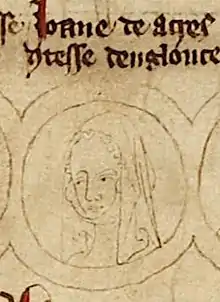 se Ioane de acres
ntesse denglouce